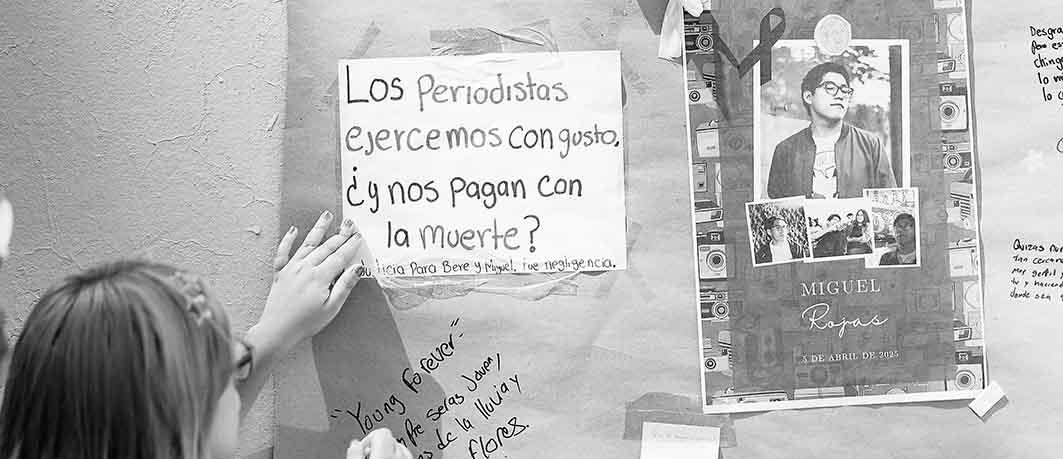 Los Periodistas
ejercemos con gusto.
¿y nos pagan con
la muerte?
Justicia Para Bere y Miguel. Fue negligencia.
"Young Forever"
seras Joven,
de la lluvia y
Flores.
MIGUEL
Rojas
5 DE ABRIL DE 2025
Desgra
lo
lo
Quizas
tan